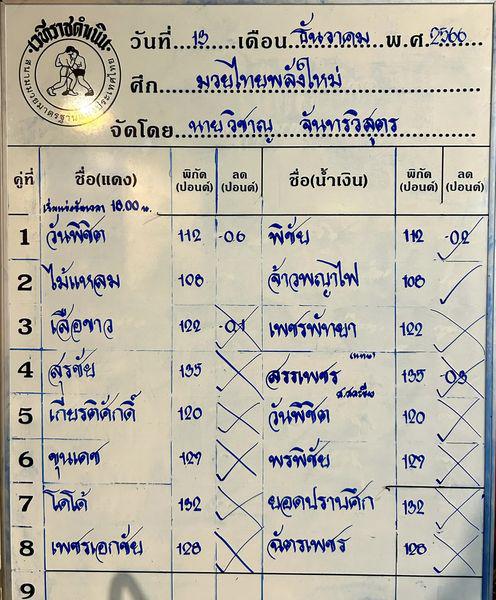 เวทีราชดำเนิน
สนามมวยมาตรฐานแห่งประเทศไทย
วันที่ 13 เดือน ธันวาคม พ.ศ. 2566
ศึก มวยไทยพลังใหม่
จัดโดย นายวิชาญ จันทรวิสุตร
คู่ที่ ชื่อ(แดง) พิกัด (ปอนด์) ลด (ปอนด์) ชื่อ(น้ำเงิน) พิกัด (ปอนด์) ลด (ปอนด์)
เริ่มแข่งขันเวลา 18.00 น.
1 วันพิชิต 112 -0.6 พิชัย 112 -0.2
2 ไม้แหลม 108 จ้าวพญาไฟ 108
3 เสือขาว 122 -0.1 เพชรพัทยา 122
(แทน)
4 สุรชัย 135 สรรเพชร 135 -0.3
5 เกียรติศักดิ์ 120 วันพิชิต 120
6 ขุนเดช 127 พรพิชัย 127
7 โดโด้ 132 ยอดปราบศึก 132
8 เพชรเอกชัย 128 ฉัตรเพชร 128
9